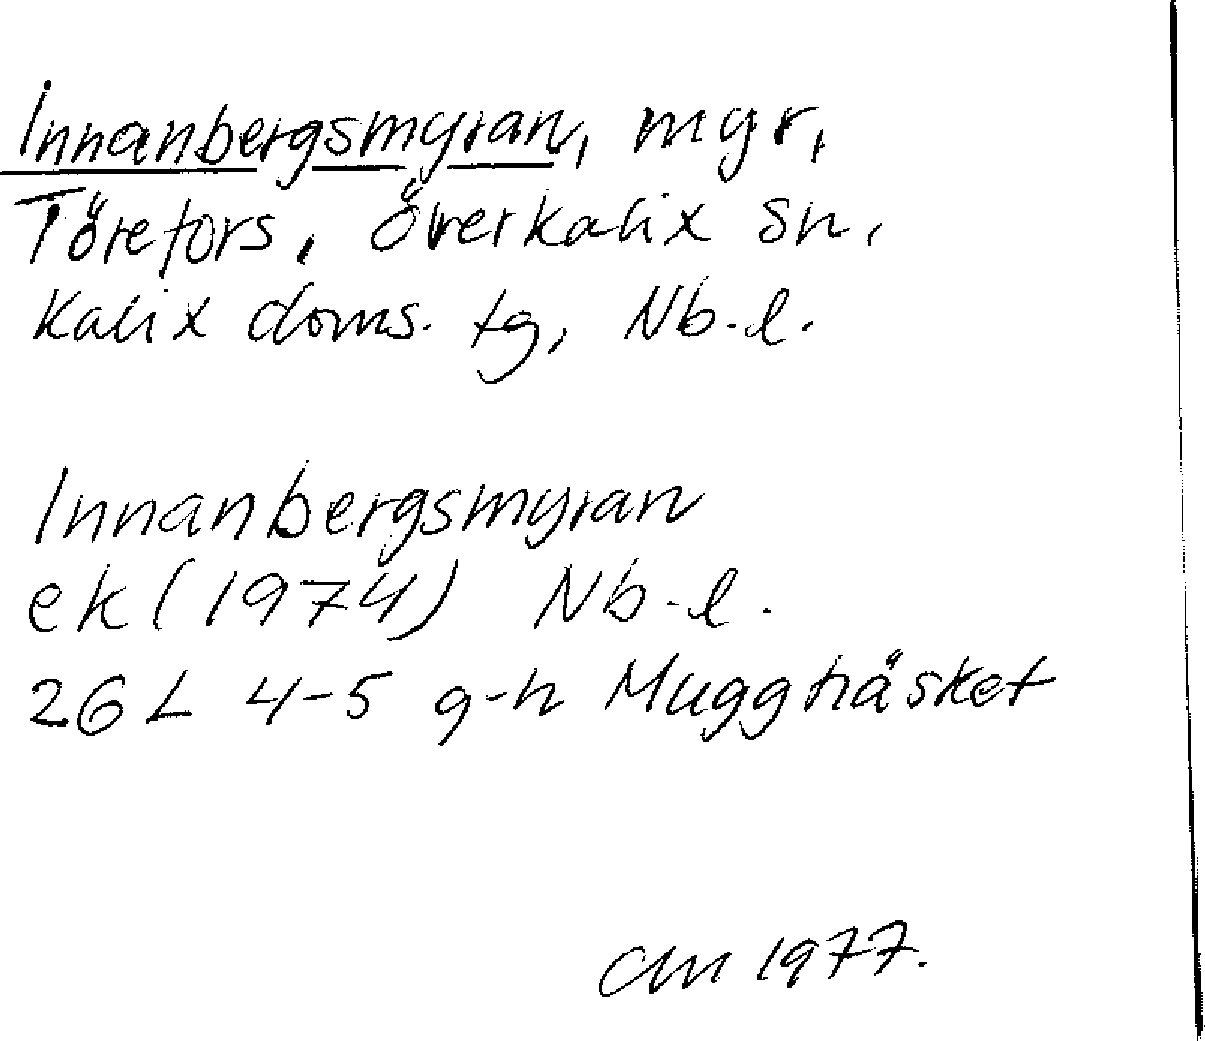 Innanbergsmyran, myr,
Törefors, Överkalix sn,
Kalix doms. tg, Nb.l.
Innanbergsmyran
ek (1974) Nb.l.
26L 4-5 g-h Muggträsket
CM 1977.